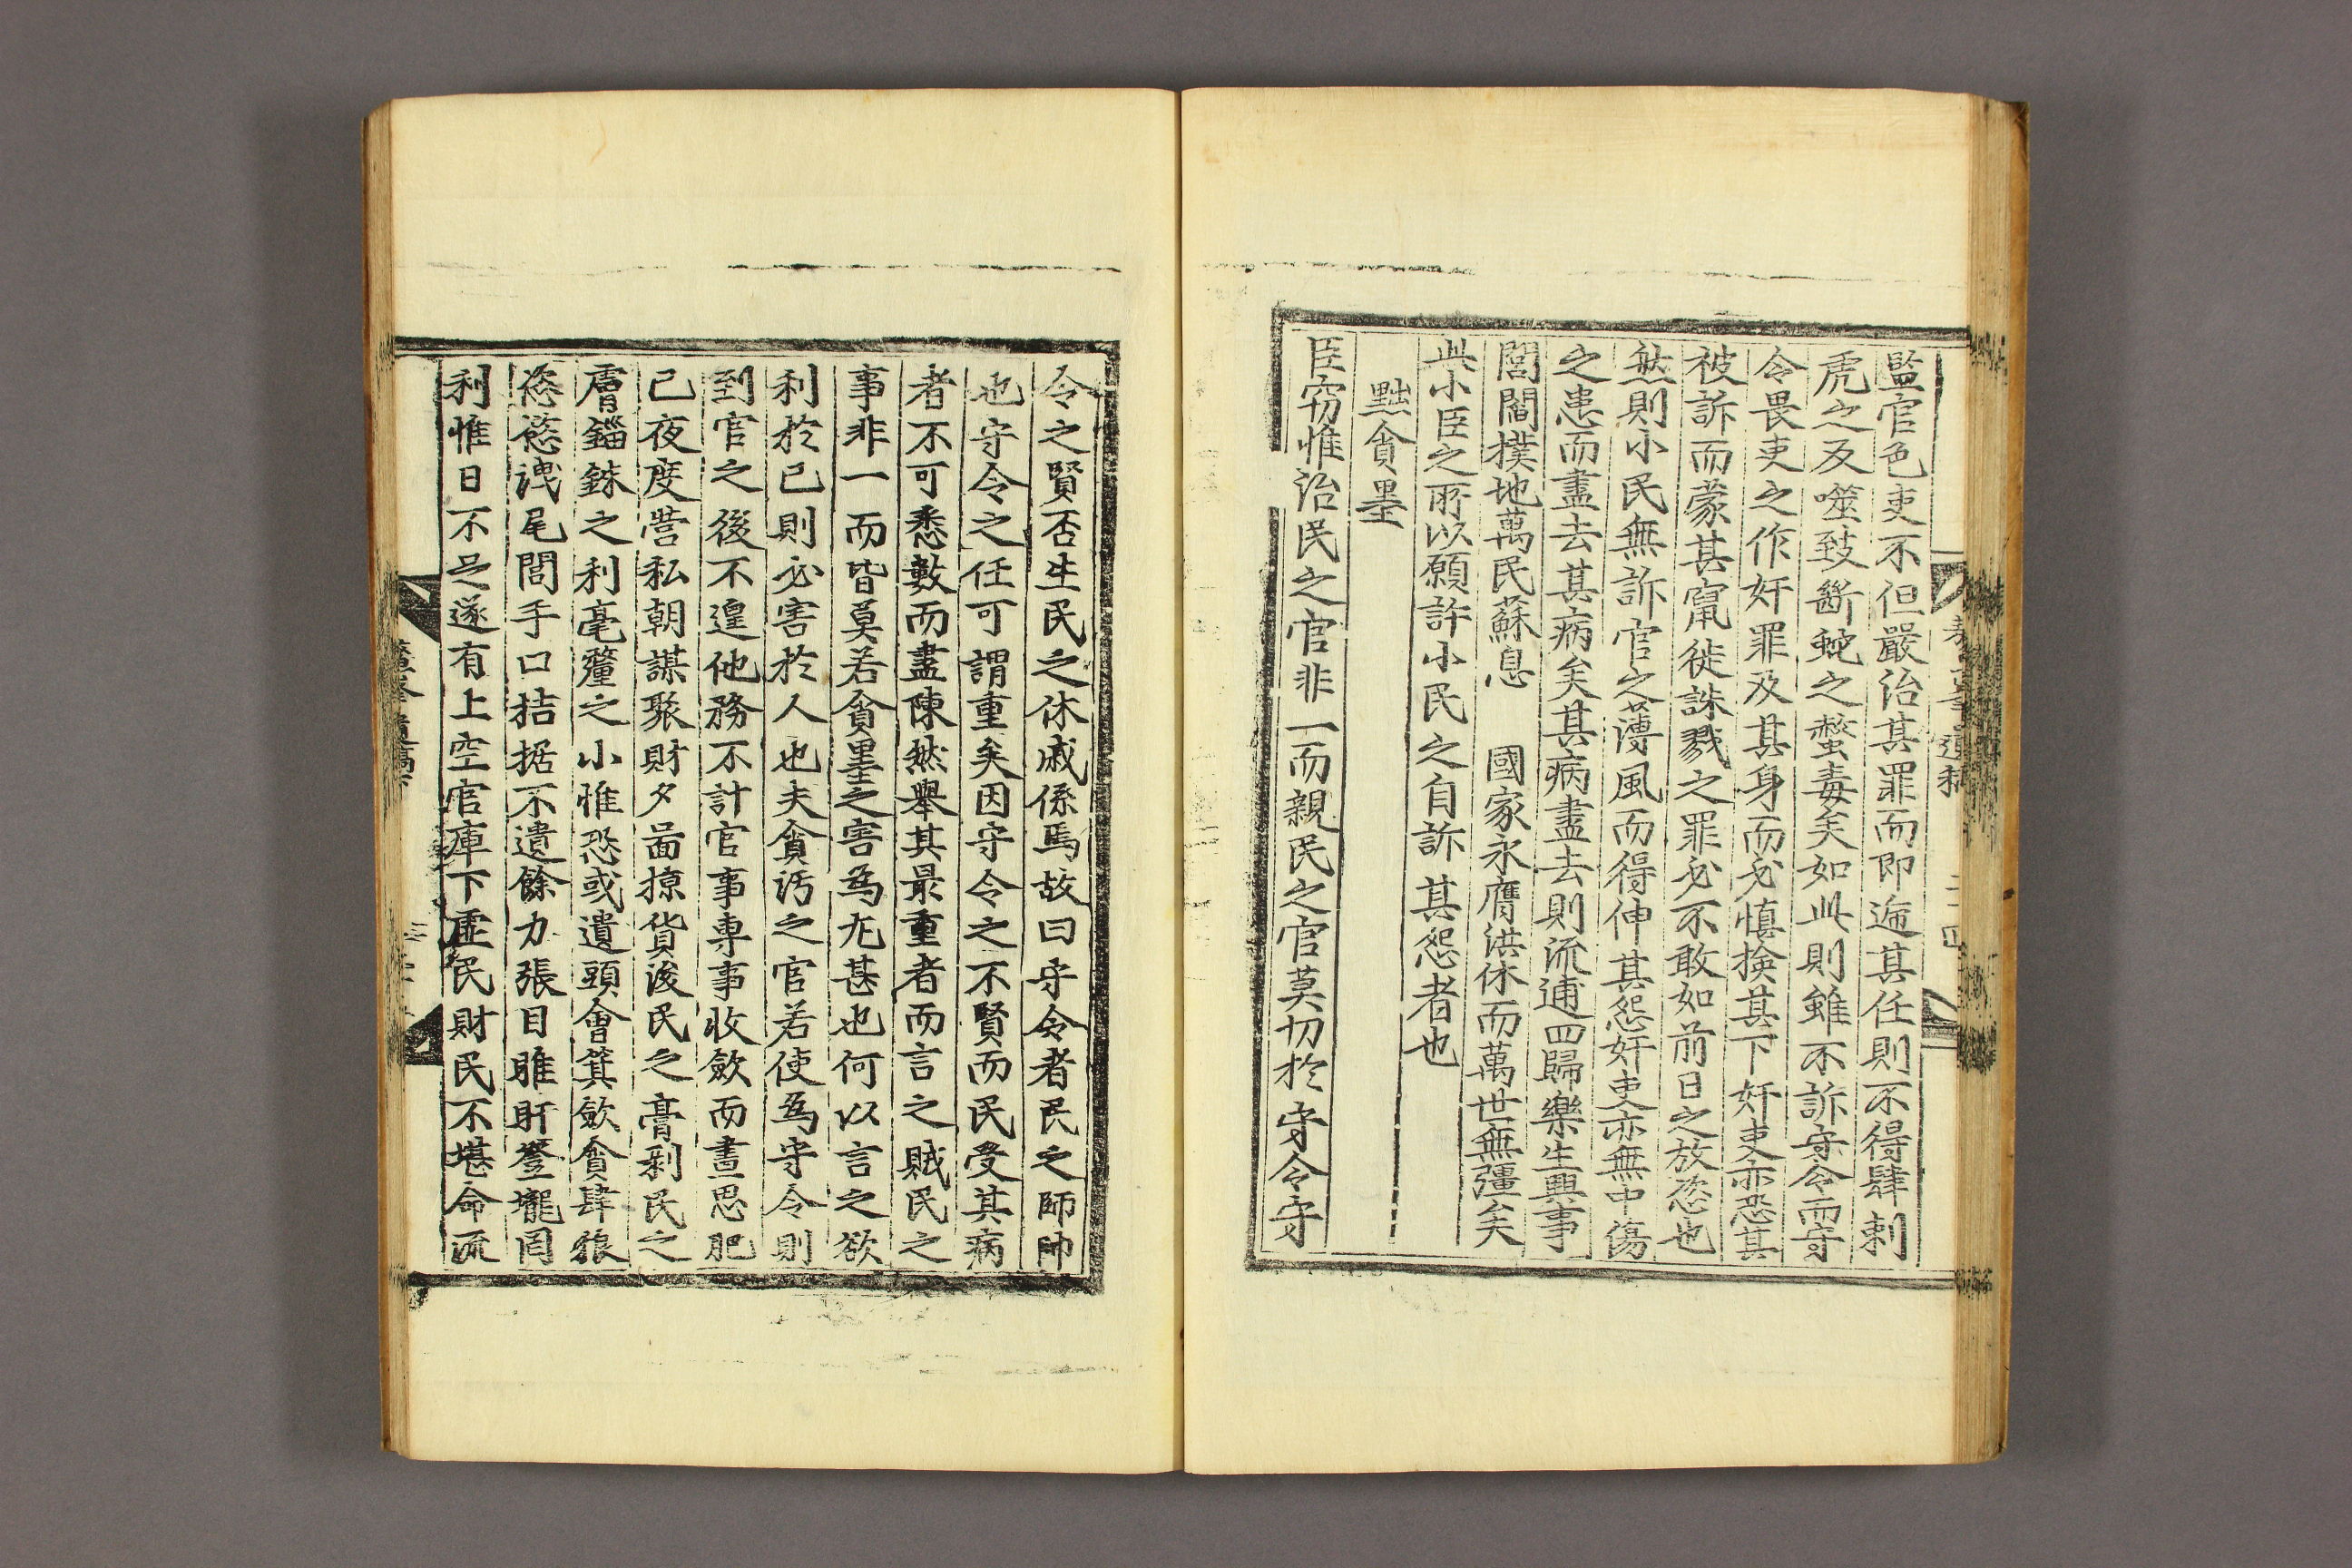 監官色吏不但嚴治其罪而即遞其任則不得肆剌
虎之反噬致斷蛇之螫毒矣如此則雖不訴守令而守
令畏吏之作奸罪及其身而必愼捡其下奸吏亦恐其
被訴而蒙其竄徙誅戮之罪必不敢如前日之放恣也
然則小民無訴官之薄風而得伸其怨奸吏亦無中傷
之患而盡去其病矣其病盡去則流逋四歸樂生興事
閭閻撲地萬民蘇息 國家永膺洪休而萬世無彊矣
此小臣之所以願許小民之自訴其怨者也
黜貪墨
臣窃惟治民之官非一而親民之官莫切於守令守
令之賢否生民之休戚係焉故曰守令者民之師帥
也守令之任可謂重矣因守令之不賢而民受其病
者不可悉數而盡陳然舉其最重者而言之賊民之
事非一而皆莫若貪墨之害爲尤甚也何以言之欲
利於已則必害於人也夫貪汚之官若使爲守令則
到官之後不遑他務不計官事專事收歛而晝思肥
己夜度营私朝謀聚財夕畵掠貨浚民之膏剥民之
膚錙銖之利毫釐之小惟恐或遺頭會箕歛貪肆狼
恣慾洩尾閭手口拮据不遺餘力張目睢盱登壠罔
利惟日不足遂有上空官庫下虛民財民不堪命流